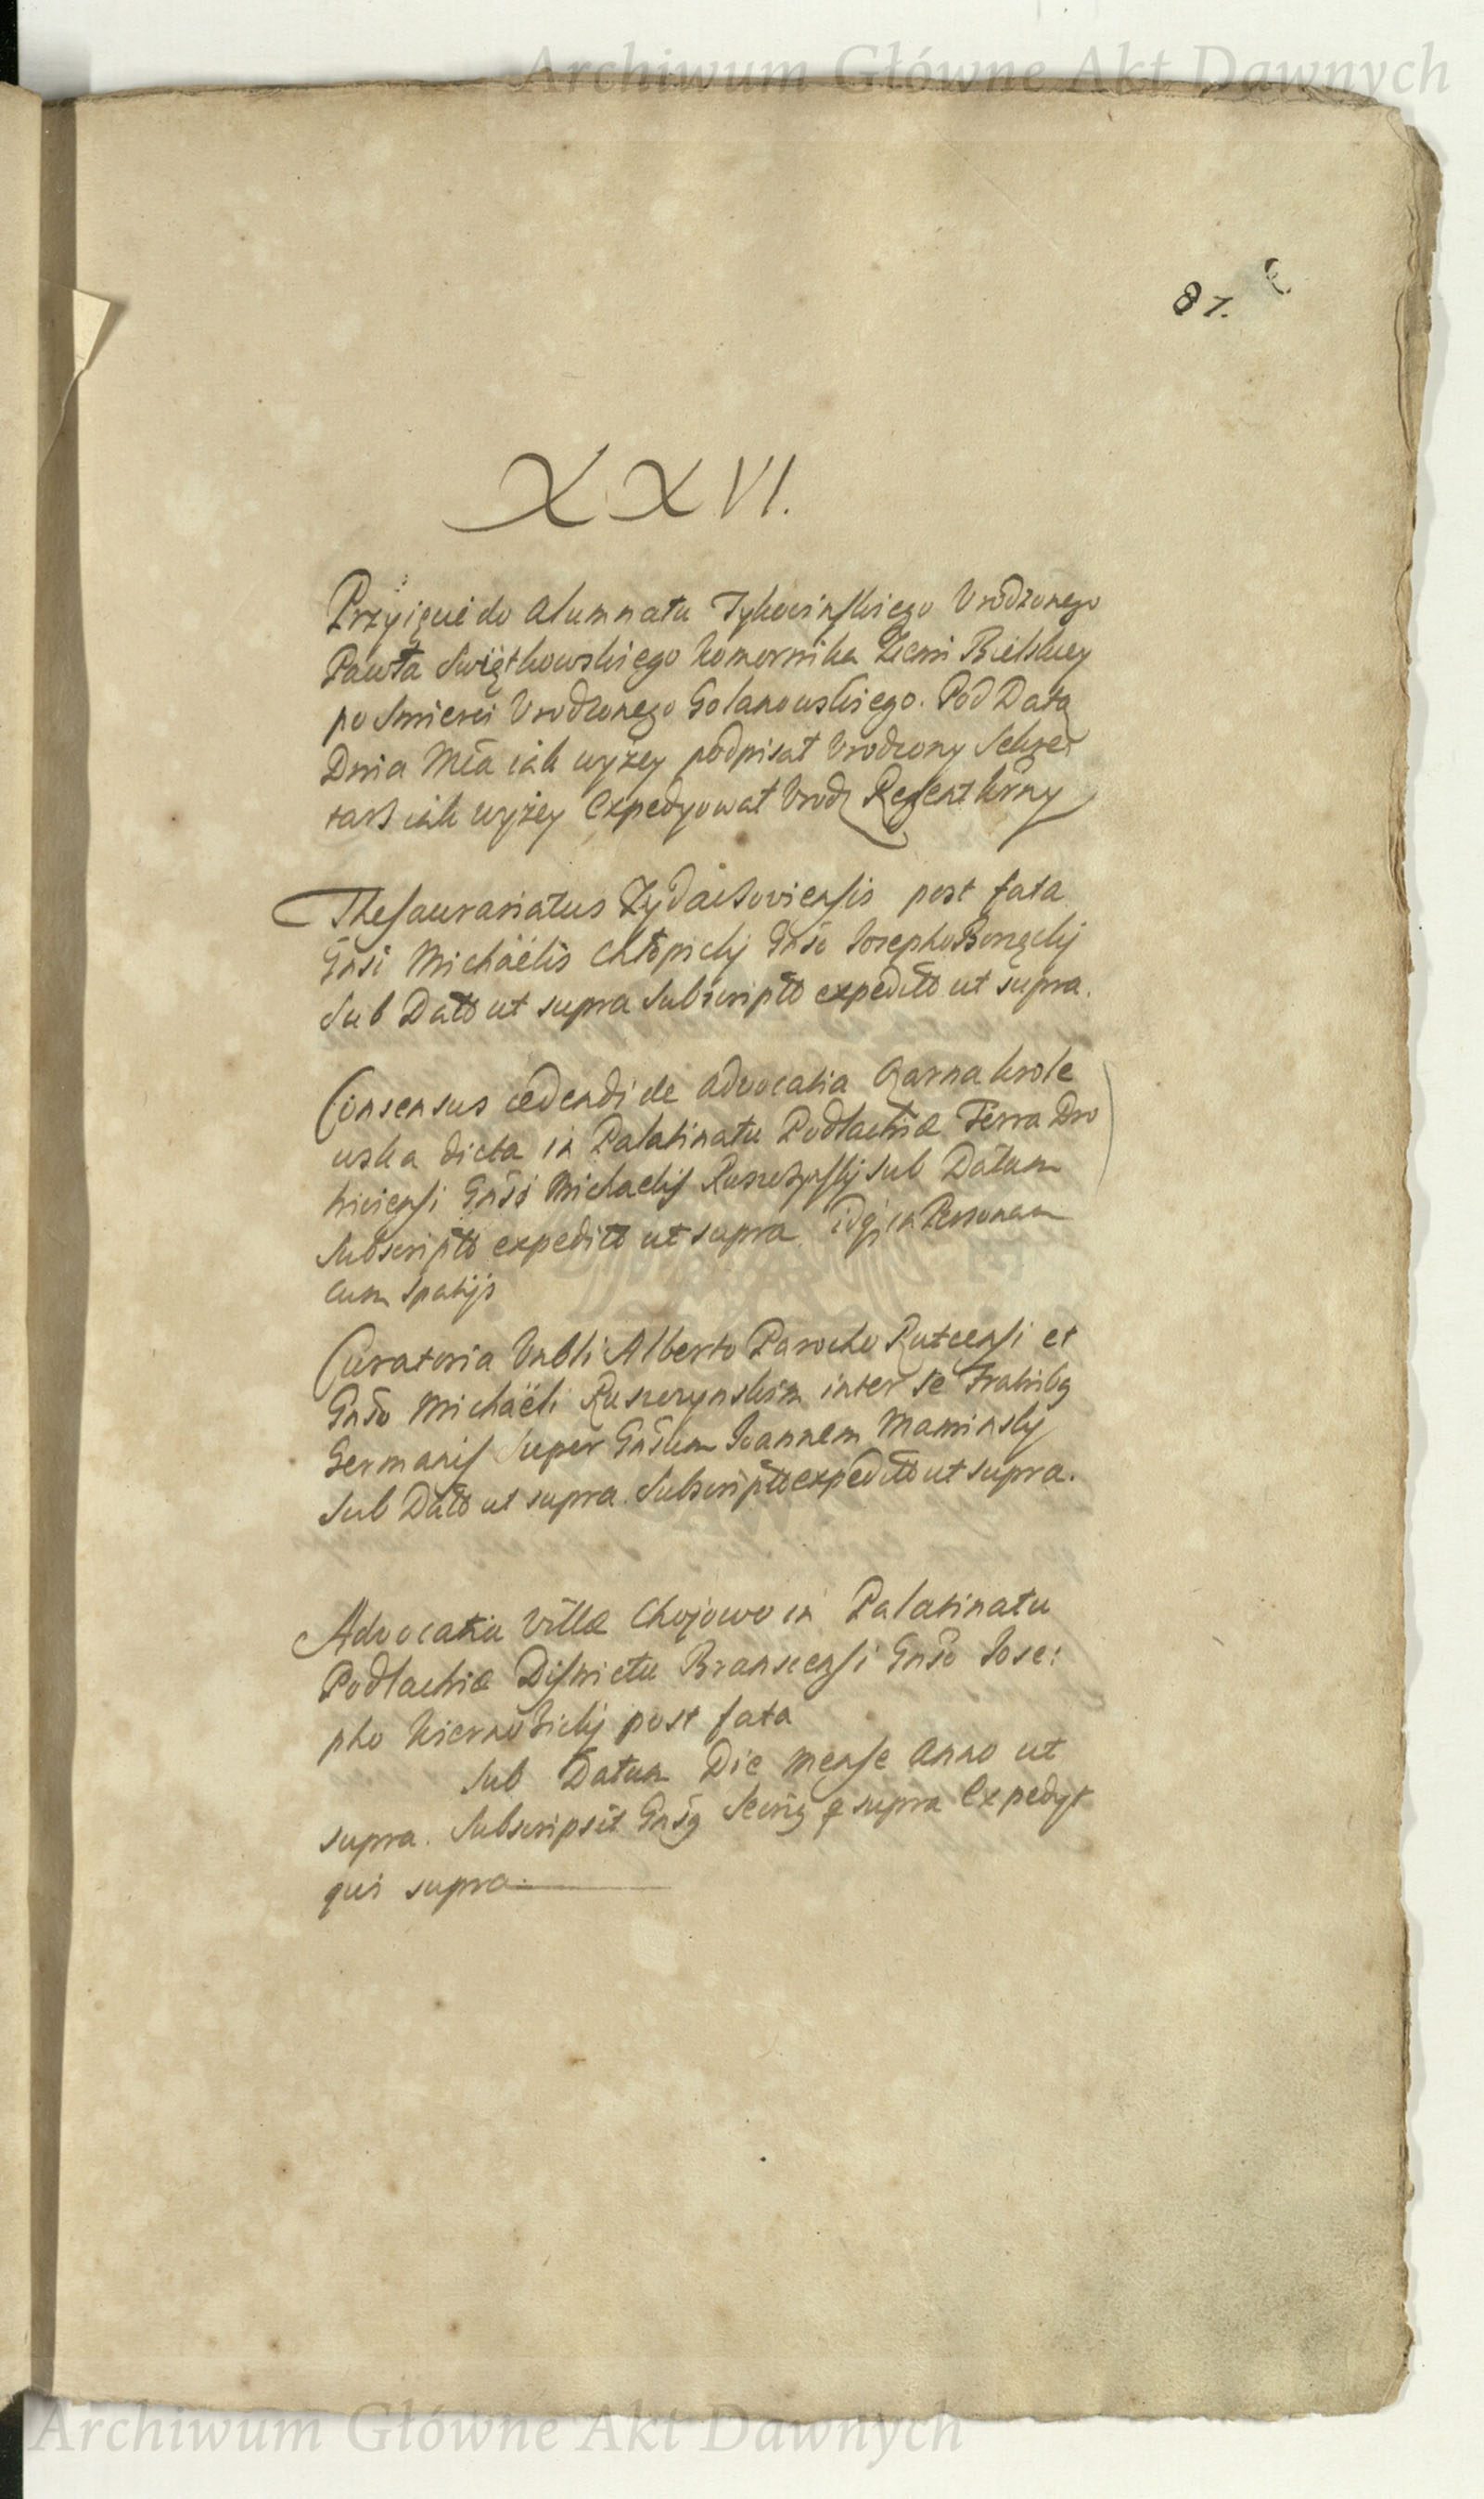 Archiwum Główne Akt Dawnych
87.
XXVI.
Przyięcie do Alumnatu Tykocinskiego Vrodzonego
Pawła Swiętkowskiego Komornika Ziemi Bielskiey
po Smierci Vrodzonego Golanowskiego. Pod Datą
Dnia Mca iak wyżey podpisał Vrodzony Sekre
tarz iak wyżey Expedyował Vrodz Regent
Thesaurariatus Zydaczoviensis post fata
Gnsi Michaëlis Chłopicky Gnso Josepho
Sub Datto ut supra Subscriptto expeditto ut supra.
Consensus cedendi de Advocatia Czarna krole
wska dicta in Palatinatu Podlachiæ Terra Dro
hiciensi Gnsi Michaelis Ruszczynsky Sub Datum
Subscriptto expeditto ut supra idq; in Personam
cum Spatijs
Curatoria Vnbli Alberto Parocho Rutcensi et
Gnso Michaëli Ruszczynskim inter se Fratribq
Germanis Super Gnsum Joannem Maminsky
Sub Datto ut supra. Subscriptto expeditto ut supra.
Advocatia Villæ Chojowo in Palatinatu
Podlachiæ Districtu Branscensi Gnso Jose:
pho Kiernozicky post fata
Sub Datum Die Mense Anno ut
supra. Subscripsit Gnsq supra Expedyt
qui supra.
Archiwum Główne Akt Dawnych